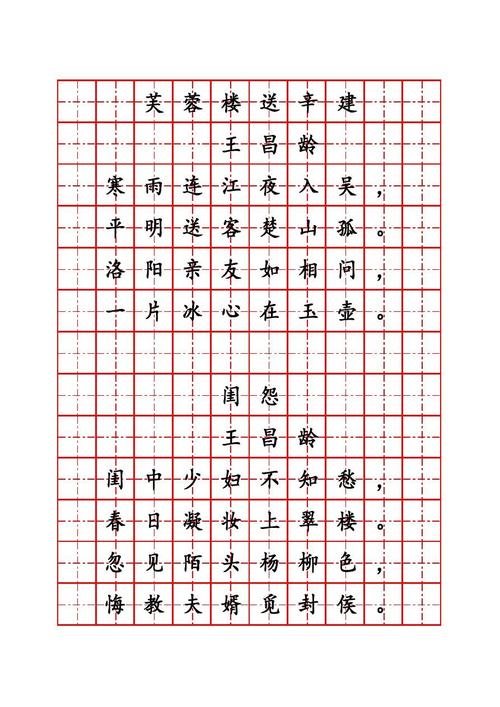 芙蓉楼送辛建
王昌龄
寒雨连江夜入吴，
平明送客楚山孤。
洛阳亲友如相问，
一片冰心在玉壶。
闺怨
王昌龄
闺中少妇不知愁，
春日凝妆上翠楼。
忽见陌头杨柳色，
悔教夫婿觅封侯。